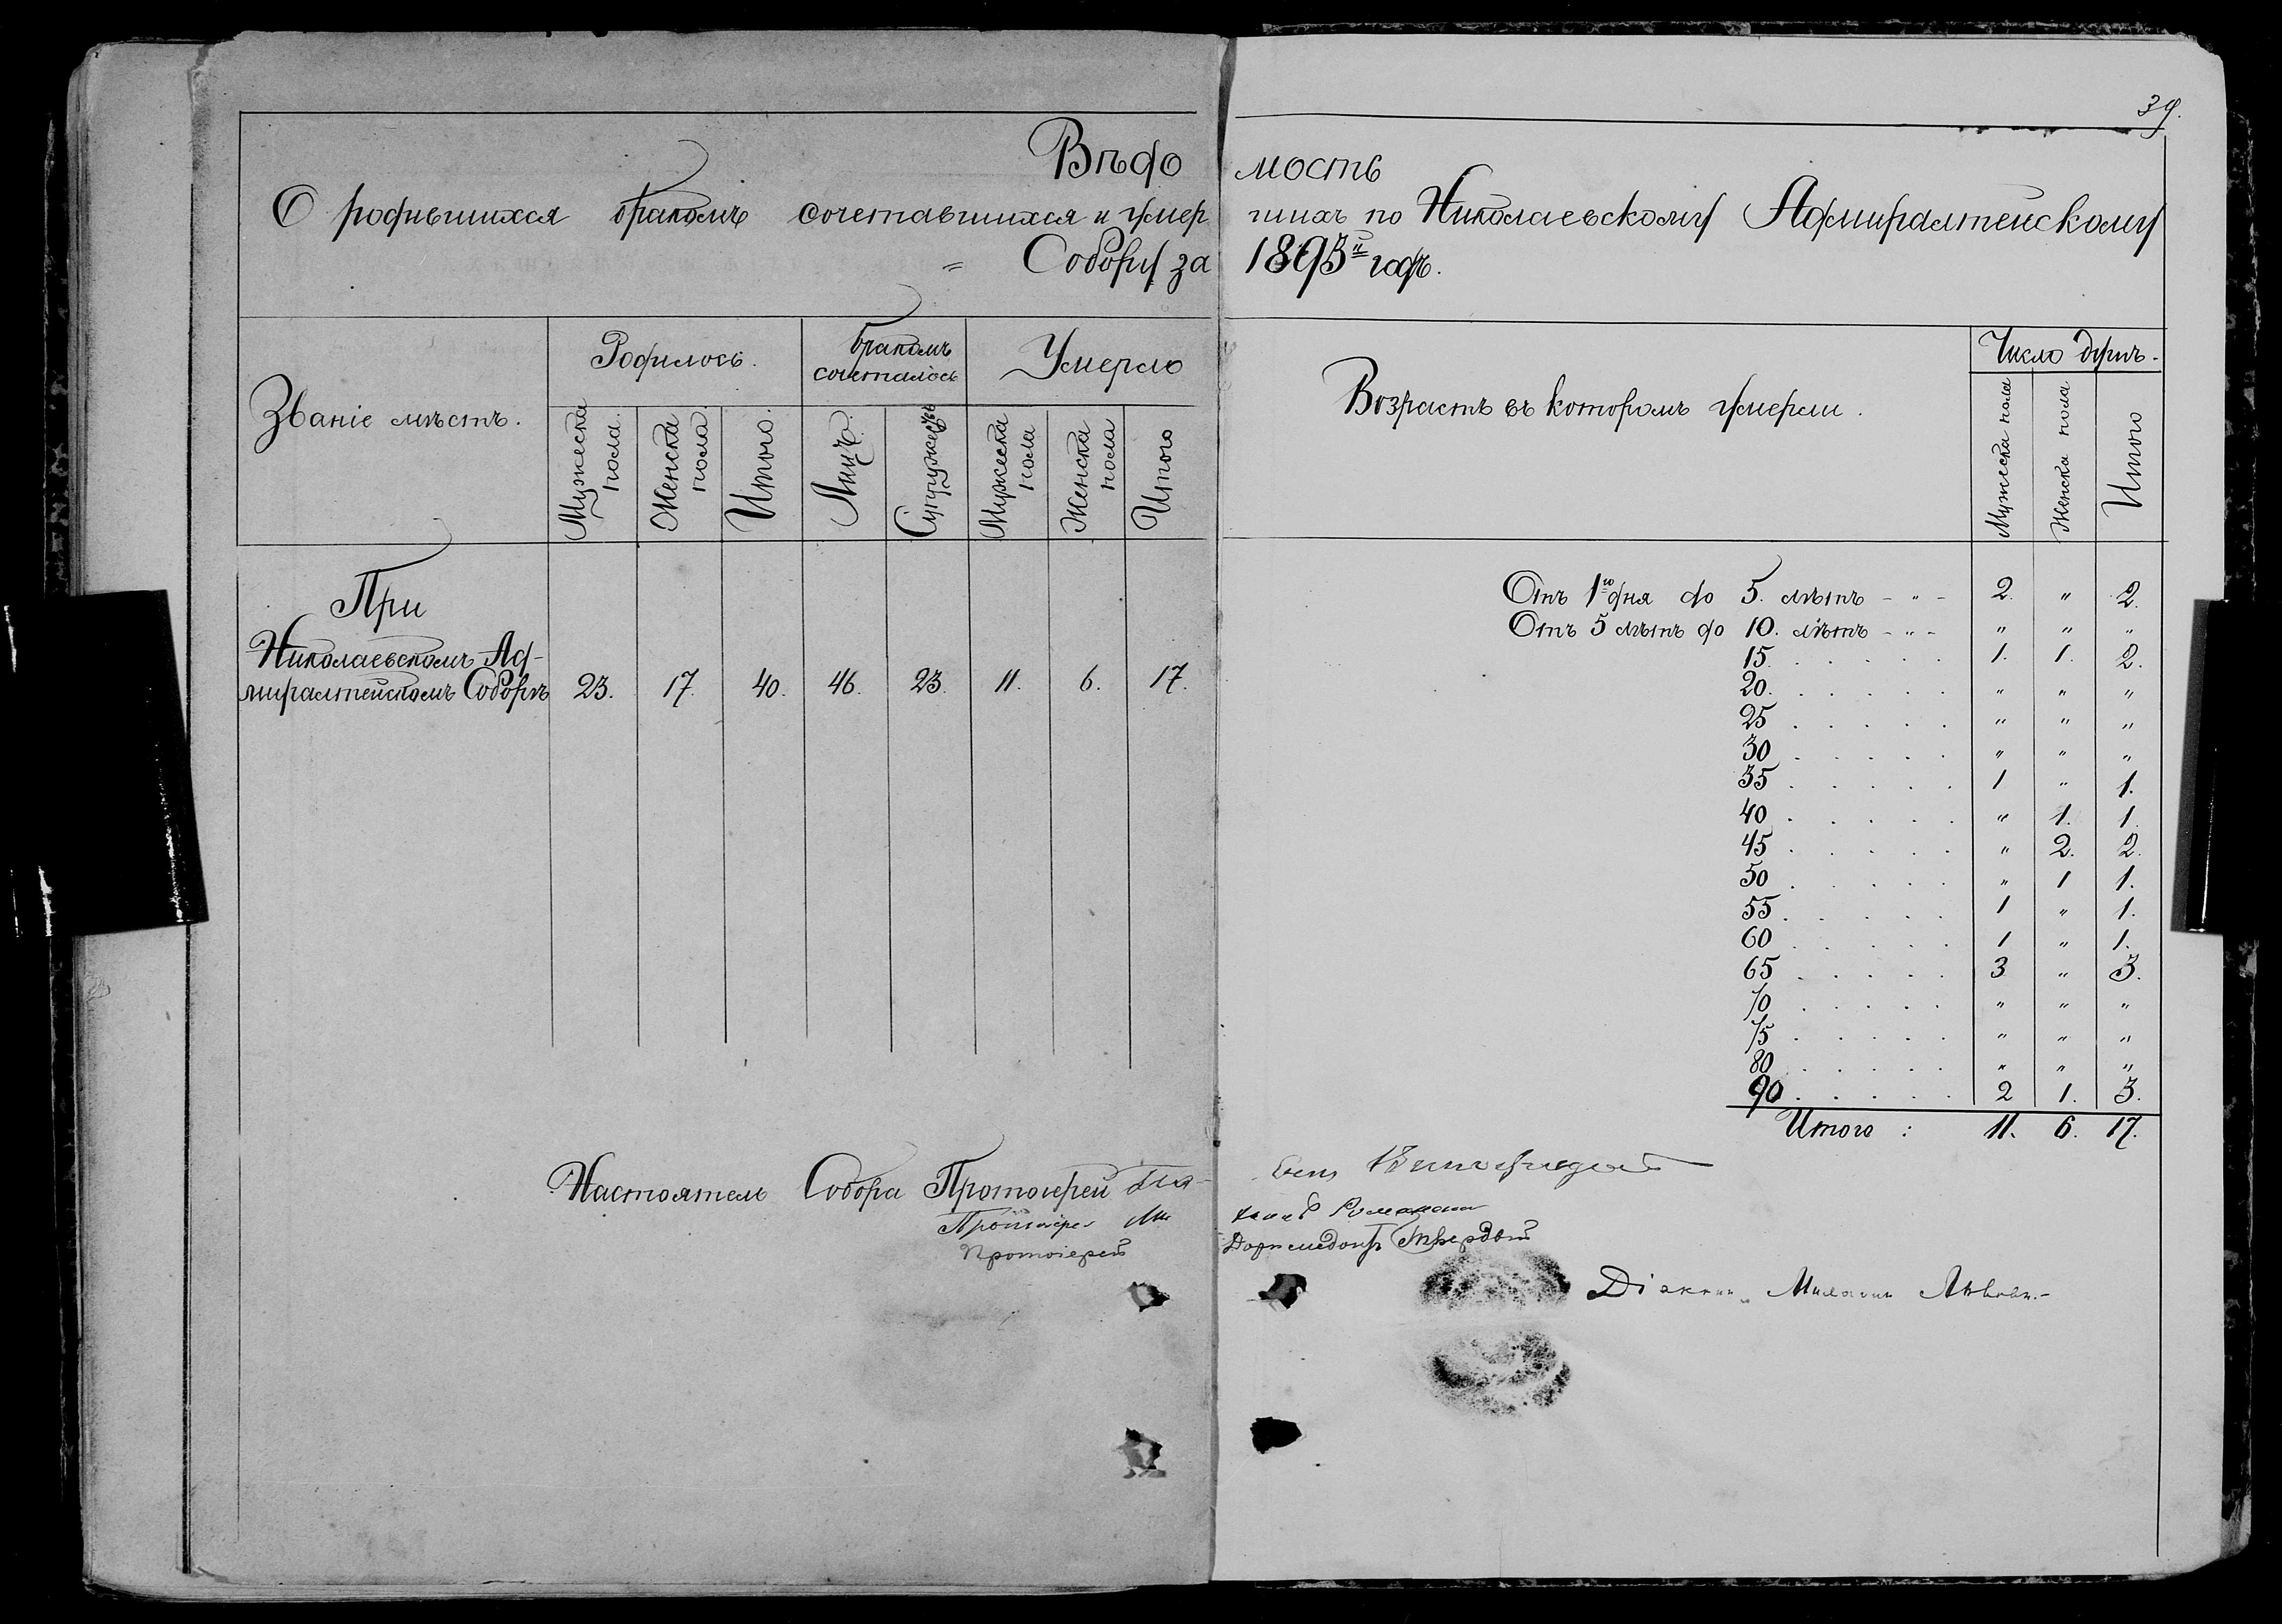 39.
Вѣдомость
О родившихся бракомъ сочетавшихся и умершихъ по Николаевскому Адмиралтейскому
Собору за 1893й годъ.
Званіе мѣстъ.
Родилось.
бракомъ сочеталось
Умерло
Мужеска пола.
Женска пола
Итого.
Лицъ.
Супружествъ
Мужеска пола
Женска пола
Итого
Возрастъ въ которомъ умерли.
Число душъ.
Мужеска пола
Женска пола
Итого
При
Николаевскомъ Ад-
миралтейскомъ Соборѣ 23. 17. 40. 46. 23. 11. 6. 17.
Отъ 1го дня до 5. лѣтъ - " - 2. " 2.
Отъ 5 лѣтъ до 10. лѣтъ - " - " " "
15. . . . . . 1. 1. 2.
20. . . . . . " " "
25 . . . . . " " "
30 . . . . . " " "
35 . . . . . 1 " 1.
40 . . . . . " 1. 1.
45 . . . . . " 2. 2.
50 . . . . . " 1 1.
55 . . . . . 1 " 1.
60 . . . . . 1 " 1.
65 . . . . . 3 " 3.
70 . . . . . " " "
75 . . . . . " " "
80 . . . . . " " "
90 . . . . . 2 1. 3.
Итого : 11. 6. 17.
Настоятель Собора Протоіерей
Протоіерей
Протоіерей Доримедонтъ Твердый
Діаконъ